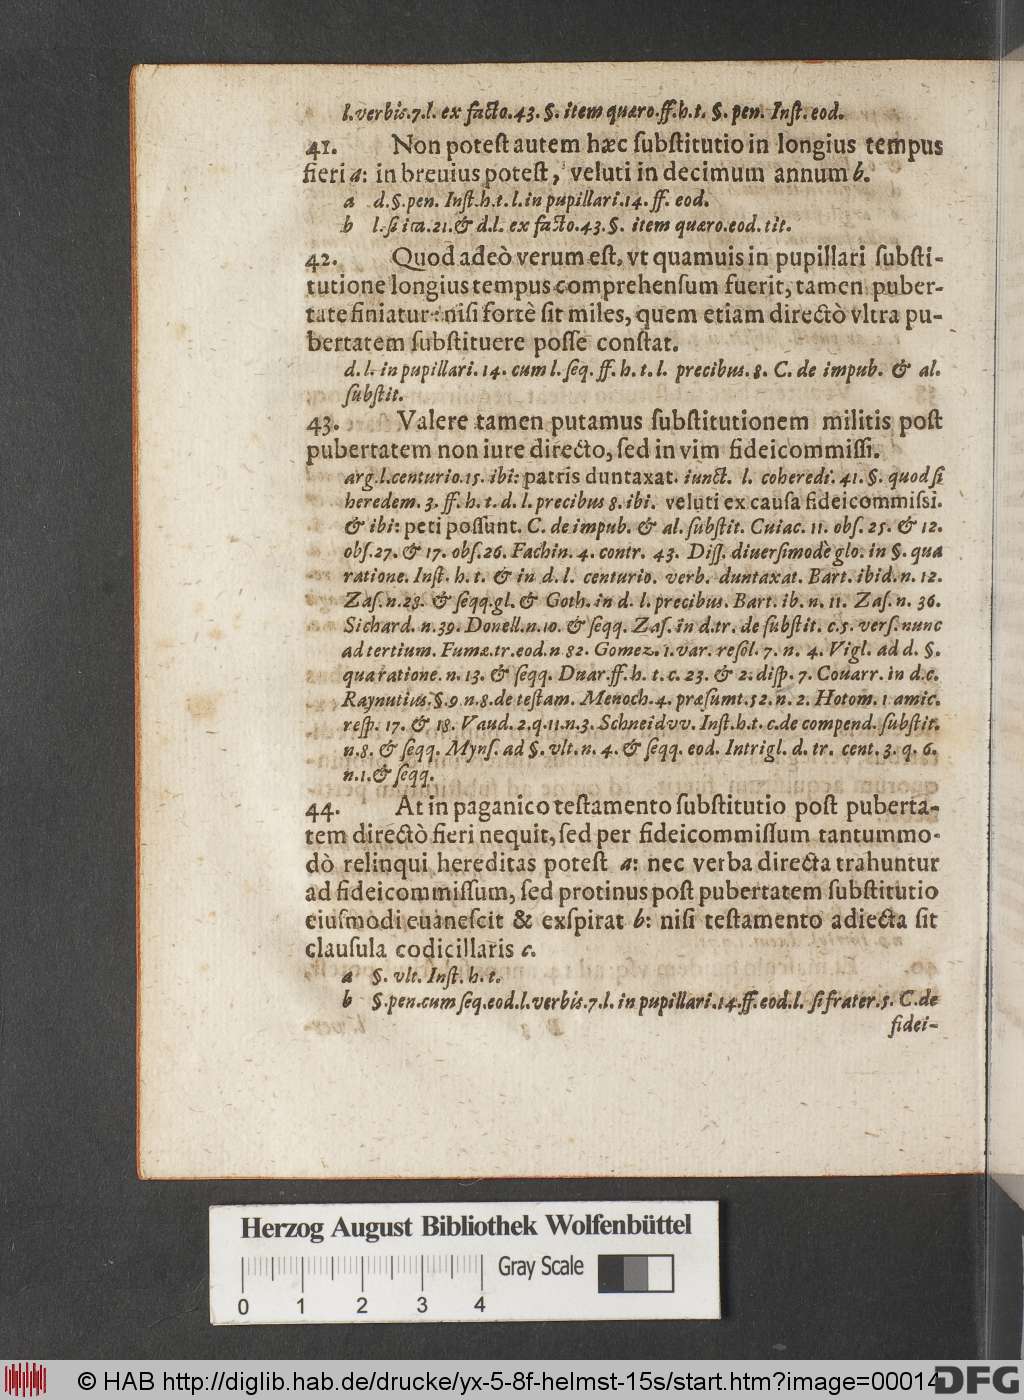 l. verbis. 7. l. ex facto. 43. §. item quæro. ff. h. t. §. pen. Inst. eod.
41. Non potest autem hæc substitutio in longius tempus
fieri a: in breuius potest, veluti in decimum annum b.
a d. §. pen. Inst. h. t. l. in pupillari. 14. ff. eod.
b l. si ita. 21. & d. l. ex facto. 43. §. item quæro. eod. tit.
42. Quod adeò verum est, vt quamuis in pupillari substi-
tutione longius tempus comprehensum fuerit, tamen puber-
tate finiatur: nisi fortè sit miles, quem etiam directò vltra pu-
bertatem substituere posse constat.
d. l. in pupillari. 14. cum l. seq. ff. h. t. l. precibus. 8. C. de impub. & al.
substit.
43. Valere tamen putamus substitutionem militis post
pubertatem non iure directo, sed in vim fideicommissi.
arg. l. centurio. 15. ibi: patris duntaxat. iunct. l. coheredi. 41. §. quod si
heredem. 3. ff. h. t. d. l. precibus 8. ibi. veluti ex causa fideicommissi.
& ibi: peti possunt. C. de impub. & al. substit. Cuiac. 11. obs. 25. & 12.
obs. 27. & 17. obs. 26. Fachin. 4. contr. 43. Diss. diuersimodè glo. in §. qua
ratione. Inst. h. t. & in d. l. centurio. verb. duntaxat. Bart. ibid. n. 12.
Zas. n. 28. & seqq. gl. & Goth. in d. l. precibus. Bart. ib. n. 11. Zas. n. 36.
Sichard. n. 39. Donell. n. 10. & seqq. Zas. in d. tr. de substit. c. 5. vers. nunc
ad tertium. Fumæ. tr. eod. n 82. Gomez. 1. var. resol. 7. n. 4. Vigl. ad d. §.
qua ratione. n. 13. & seqq. Duar. ff. h. t. c. 23. & 2. disp. 7. Couarr. in d. c.
Raynutius. §. 9 n. 8. de testam. Menoch. 4. præsumt. 52. n. 2. Hotom. 1 amic.
resp. 17. & 18. Vaud. 2. q. 11. n. 3. Schneidvv. Inst. h. t. c. de compend. substit.
n. 8. & seqq. Myns. ad §. vlt. n. 4. & seqq. eod. Intrigl. d. tr. cent. 3. q. 6.
n. 1. & seqq.
44. At in paganico testamento substitutio post puberta-
tem directò fieri nequit, sed per fideicommissum tantummo-
dò relinqui hereditas potest a: nec verba directa trahuntur
ad fideicommissum, sed protinus post pubertatem substitutio
eiusmodi euanescit & exspirat b: nisi testamento adiecta sit
clausula codicillaris c.
a §. vlt. Inst. h. t.
b §. pen. cum seq. eod. l. verbis. 7. l. in pupillari. 14. ff. eod. l. si frater. 5. C. de
fidei-
Herzog August Bibliothek Wolfenbüttel
Gray Scale
0 1 2 3 4
© HAB http://diglib.hab.de/drucke/yx-5-8f-helmst-15s/start.htm?image=00014
DFG